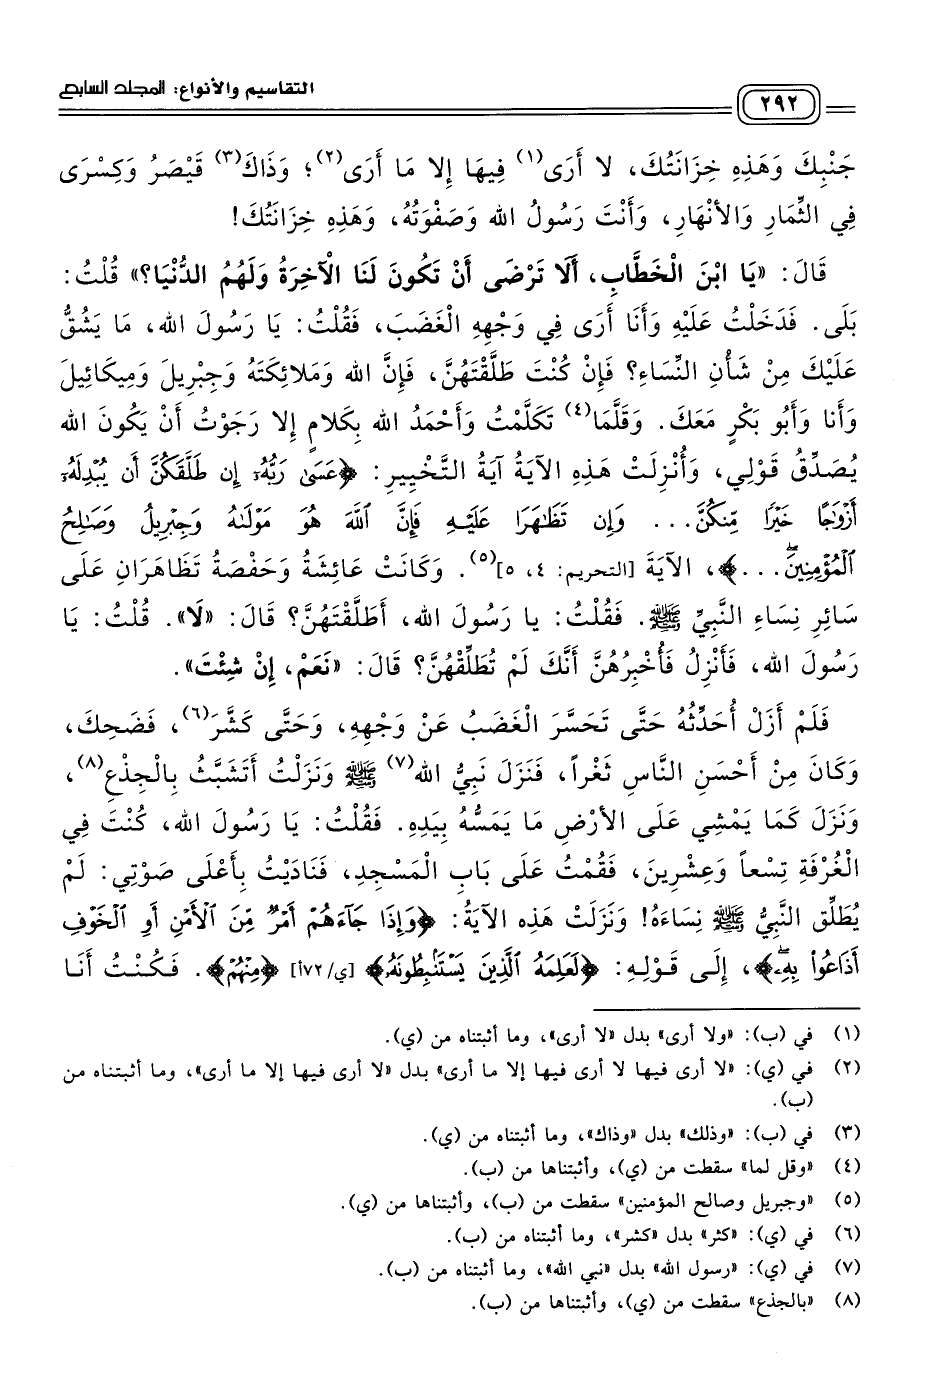 التقاسيم والأنواع: المجلد السابع
٢٩٢
جَنْبِكَ وَهَذِهِ خِزَانَتُكَ، لا أَرَى(١) فِيهَا إِلا مَا أَرَى(٢)؛ وَذَاكَ(٣) قَيْصَرُ وَكِسْرَى
فِي الثِّمَارِ وَالأَنْهَارِ، وَأَنْتَ رَسُولُ الله وَصَفْوَتُهُ، وَهَذِهِ خِزَانَتُكَ!
قَالَ: «يَا ابْنَ الْخَطَّابِ، أَلَا تَرْضَى أَنْ تَكُونَ لَنَا الْآخِرَةُ وَلَهُمُ الدُّنْيَا؟» قُلْتُ:
بَلَى. فَدَخَلْتُ عَلَيْهِ وَأَنَا أَرَى فِي وَجْهِهِ الْغَضَبَ، فَقُلْتُ: يَا رَسُولَ الله، مَا يَشُقُّ
عَلَيْكَ مِنْ شَأْنِ النِّسَاءِ؟ فَإِنْ كُنْتَ طَلَّقْتَهُنَّ، فَإِنَّ الله وَمَلائِكَتَهُ وَجِبْرِيلَ وَمِيكَائِيلَ
وَأَنا وَأَبُو بَكْرٍ مَعَكَ. وَقَلَّمَا(٤) تَكَلَّمْتُ وَأَحْمَدُ الله بِكَلامٍ إِلا رَجَوْتُ أَنْ يَكُونَ الله
يُصَدِّقُ قَوْلِي، وَأُنْزِلَتْ هَذِهِ الآيَةُ آيَةُ التَّخْيِيرِ: ﴿عَسَىٰ رَبُّهُۥٓ إِن طَلَّقَكُنَّ أَن يُبْدِلَهُۥٓ
أَزْوَٰجًا خَيْرًا مِّنكُنَّ... وَإِن تَظَٰهَرَا عَلَيْهِ فَإِنَّ ٱللَّهَ هُوَ مَوْلَىٰهُ وَجِبْرِيلُ وَصَٰلِحُ
ٱلْمُؤْمِنِينَۖ...﴾، الآيَةَ [التحريم: ٤، ٥](٥). وَكَانَتْ عَائِشَةُ وَحَفْصَةُ تَظَاهَرَانِ عَلَى
سَائِرِ نِسَاءِ النَّبِيِّ ﷺ. فَقُلْتُ: يا رَسُولَ الله، أَطَلَّقْتَهُنَّ؟ قَالَ: «لَا». قُلْتُ: يَا
رَسُولَ الله، فَأَنْزِلُ فَأُخْبِرُهُنَّ أَنَّكَ لَمْ تُطَلِّقْهُنَّ؟ قَالَ: «نَعَمْ، إِنْ شِئْتَ».
فَلَمْ أَزَلْ أُحَدِّثُهُ حَتَّى تَحَسَّرَ الْغَضَبُ عَنْ وَجْهِهِ، وَحَتَّى كَشَّرَ(٦)، فَضَحِكَ،
وَكَانَ مِنْ أَحْسَنِ النَّاسِ ثَغْراً، فَنَزَلَ نَبِيُّ الله(٧) ﷺ وَنَزَلْتُ أَتَشَبَّثُ بِالْجِذْعِ(٨)،
وَنَزَلَ كَمَا يَمْشِي عَلَى الأَرْضِ مَا يَمَسُّهُ بِيَدِهِ. فَقُلْتُ: يَا رَسُولَ الله، كُنْتَ فِي
الْغُرْفَةِ تِسْعاً وَعِشْرِينَ، فَقُمْتُ عَلَى بَابِ الْمَسْجِدِ، فَنَادَيْتُ بِأَعْلَى صَوْتِي: لَمْ
يُطَلِّقِ النَّبِيُّ ﷺ نِسَاءَهُ! وَنَزَلَتْ هَذِهِ الآيَةُ: ﴿وَإِذَا جَآءَهُمْ أَمْرٌ مِّنَ ٱلْأَمْنِ أَوِ ٱلْخَوْفِ
أَذَاعُوا۟ بِهِۦۖ﴾، إِلَى قَوْلِهِ: ﴿لَعَلِمَهُ ٱلَّذِينَ يَسْتَنۢبِطُونَهُۥ﴾ [ي/٧٢أ] ﴿مِنْهُمْۗ﴾. فَكُنْتُ أَنَا
(١) في (ب): «ولا أرى» بدل «لا أرى»، وما أثبتناه من (ي).
(٢) في (ي): «لا أرى فيها لا أرى فيها إلا ما أرى» بدل «لا أرى فيها إلا ما أرى»، وما أثبتناه من
(ب).
(٣) في (ب): «وذلك» بدل «وذاك»، وما أثبتناه من (ي).
(٤) «وقل لما» سقطت من (ي)، وأثبتناها من (ب).
(٥) «وجبريل وصالح المؤمنين» سقطت من (ب)، وأثبتناها من (ي).
(٦) في (ي): «كثر» بدل «كشر»، وما أثبتناه من (ب).
(٧) في (ي): «رسول الله» بدل «نبي الله»، وما أثبتناه من (ب).
(٨) «بالجذع» سقطت من (ي)، وأثبتناها من (ب).